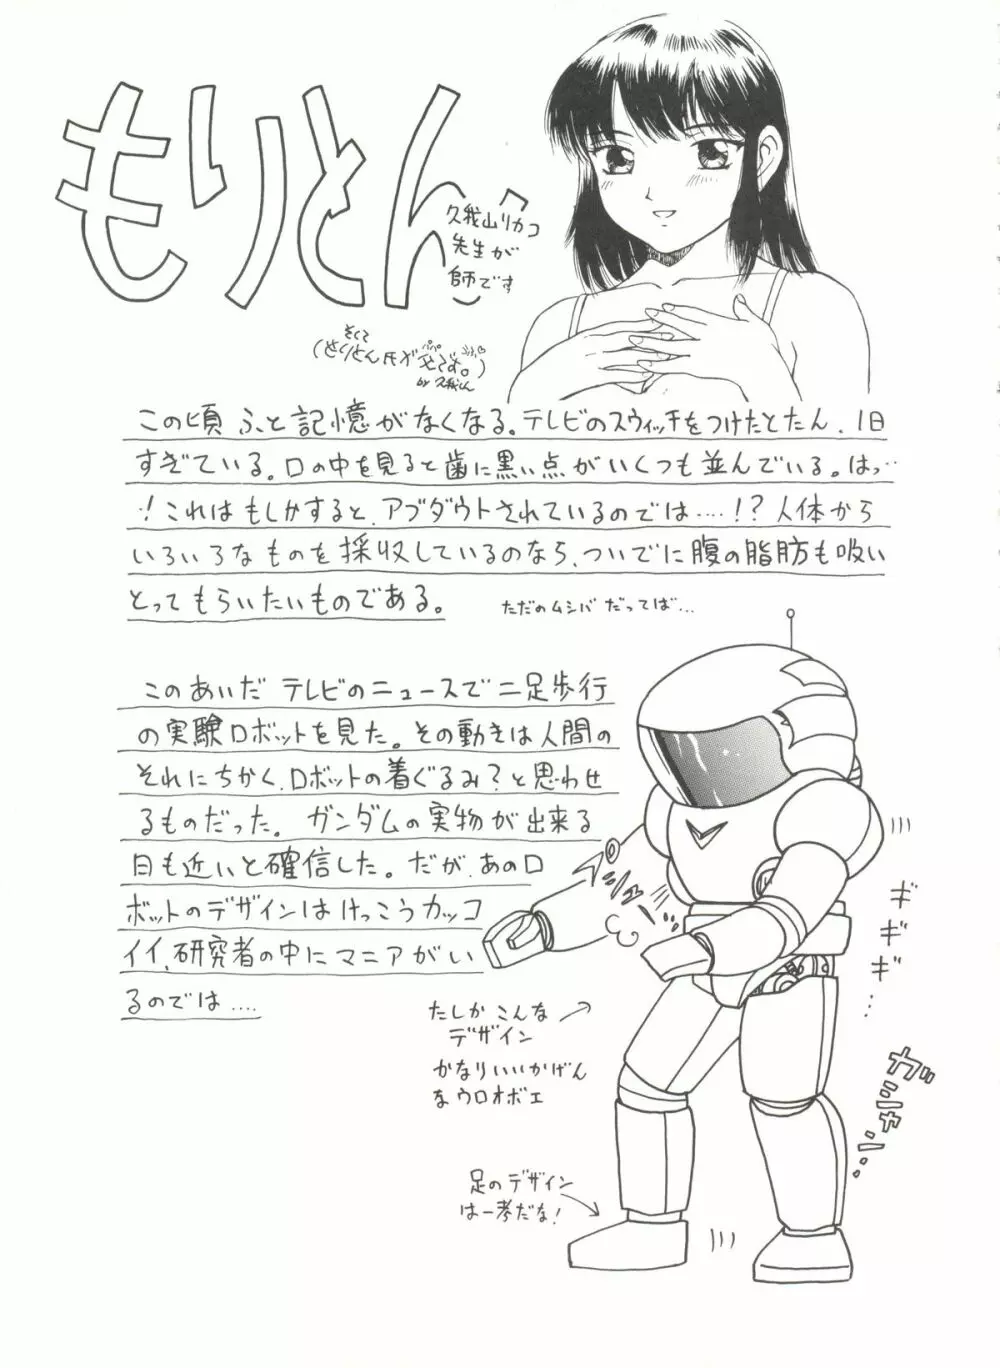 もりとん
久我山リカコ
先生が
師です
(もりとん氏が父です。)
by 久我くん
この頃 ふと記憶がなくなる。テレビのスウィッチをつけたとたん、1日
すぎている。口の中を見ると歯に黒い点がいくつも並んでいる。はっ…
!これはもしかすると、アブダウトされているのでは……!?人体から
いろいろなものを採収しているのなら、ついでに腹の脂肪も吸い
とってもらいたいものである。
ただのムシバ だってば…
このあいだ テレビのニュースで二足歩行
の実験ロボットを見た。その動きは人間の
それにちかく、ロボットの着ぐるみ?と思わせ
るものだった。 ガンダムの実物が出来る
日も近いと確信した。だが、あのロ
ボットのデザインはけっこうカッコ
イイ、研究者の中にマニアがい
るのでは….
ギ
ギ
ギ…
たしか こんな
デザイン
かなりいいかげん
なウロオボエ
ガシャン…
足のデザイン
は一考だな!